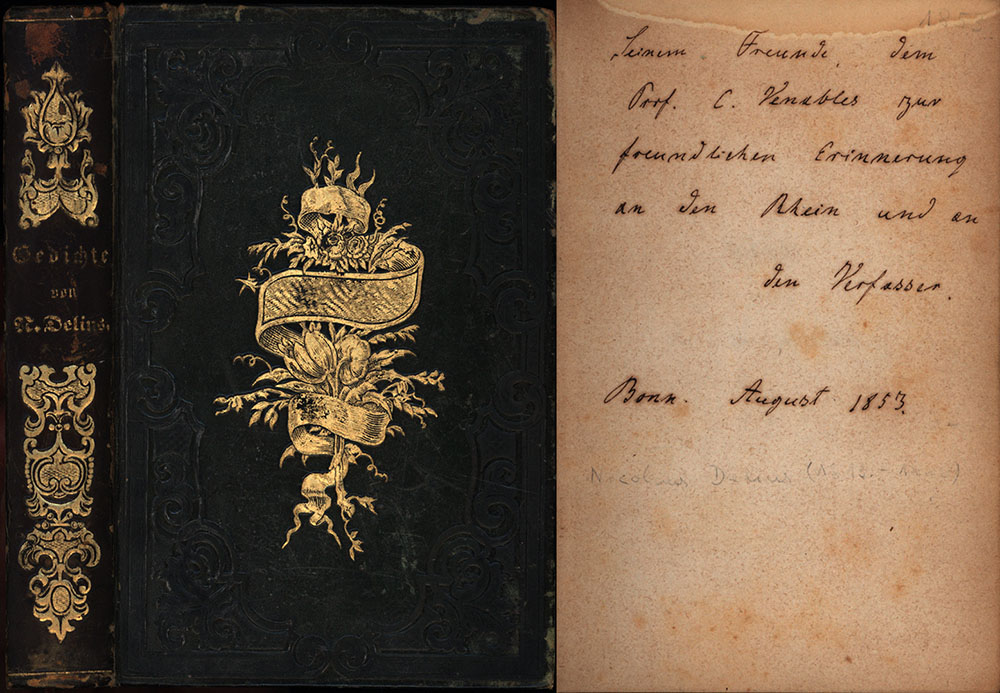 Gedichte
von
N. Delius.
Seinem Freunde, dem
Prof. C. Venables zur
freundlichen Erinnerung
an den Rhein und an
den Verfasser.
Bonn. August 1853.
Nicolaus Delius